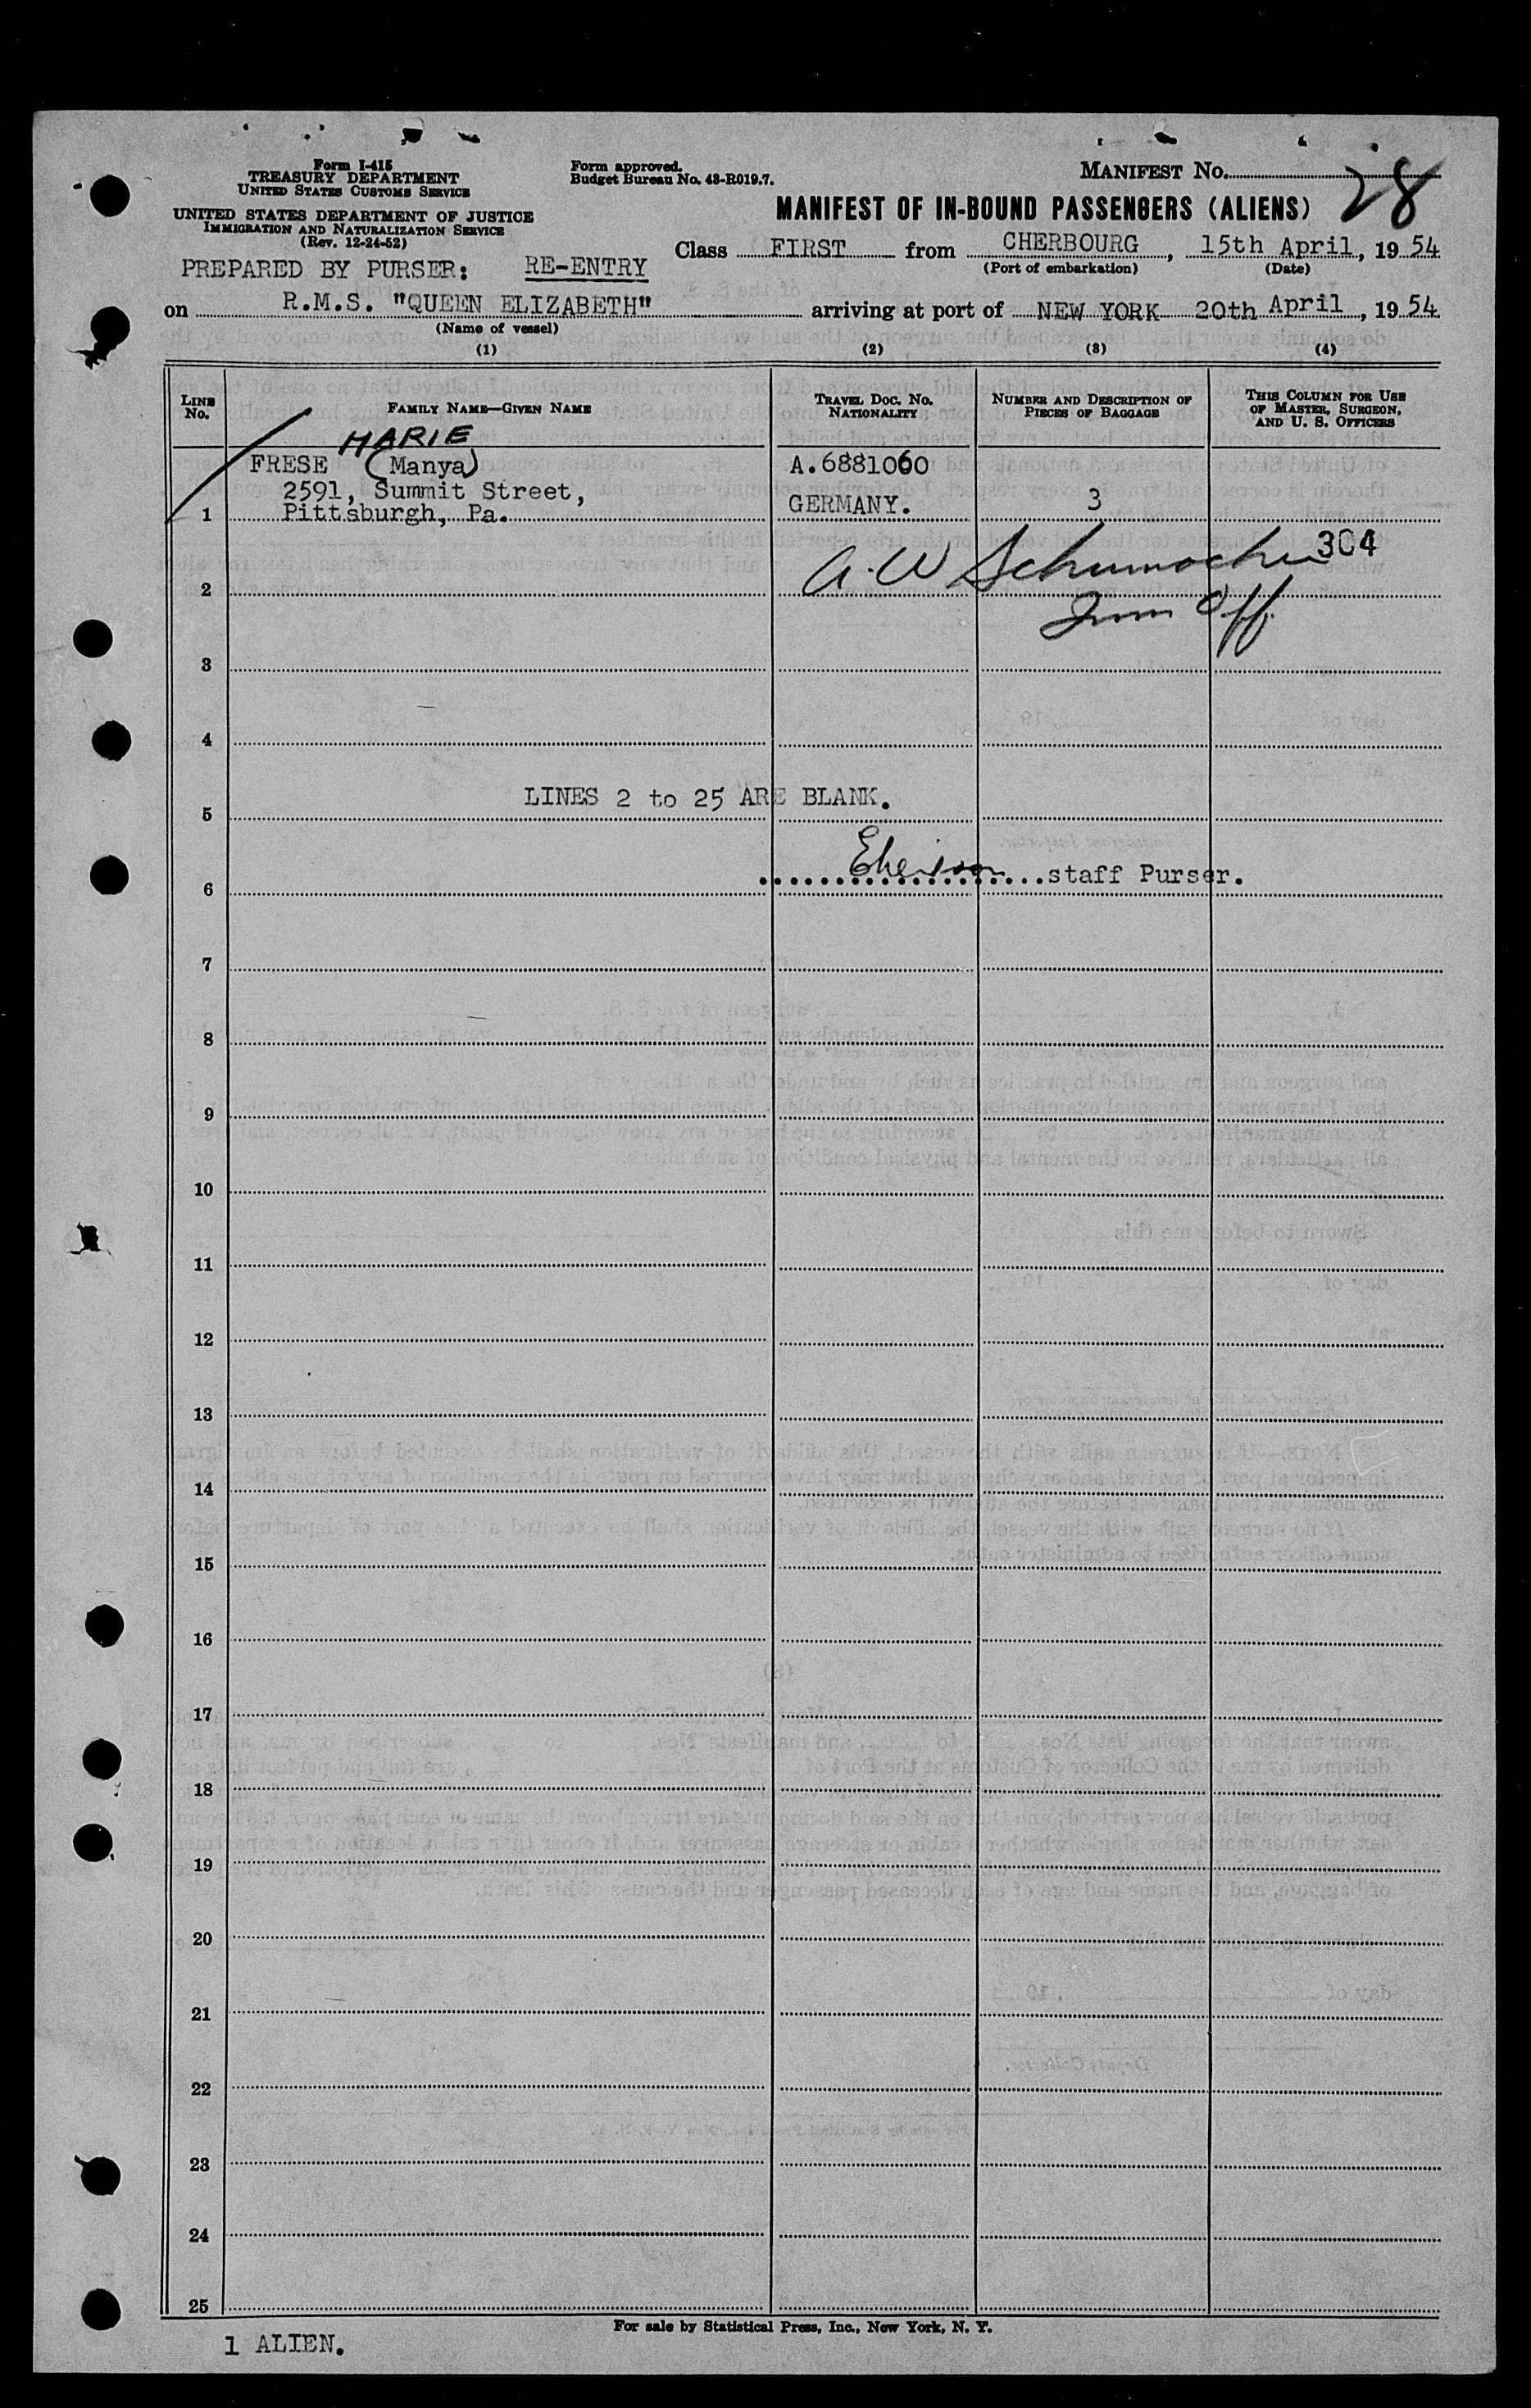 Form I-415
TREASURY DEPARTMENT
UNITED STATES CUSTOMS SERVICE
UNITED STATES DEPARTMENT OF JUSTICE
IMMIGRATION AND NATURALIZATION SERVICE
(Rev. 12-24-52)
Form approved.
Budget Bureau No. 43-R019.7.
MANIFEST No. 28
MANIFEST OF IN-BOUND PASSENGERS (ALIENS)
Class FIRST from CHERBOURG, 15th April, 1954
(Port of embarkation) (Date)
PREPARED BY PURSER: RE-ENTRY
on R.M.S. "QUEEN ELIZABETH" arriving at port of NEW YORK 20th April, 1954
(Name of vessel)
(1) (2) (3) (4)
LINE No. FAMILY NAME—GIVEN NAME TRAVEL DOC. NO. NATIONALITY NUMBER AND DESCRIPTION OF PIECES OF BAGGAGE THIS COLUMN FOR USE OF MASTER, SURGEON, AND U. S. OFFICERS
MARIE
FRESE (Manya) A.6881060
2591, Summit Street,
1 Pittsburgh, Pa. GERMANY. 3
304
A.W Schumacher
2
Imm Off
3
4
LINES 2 to 25 ARE BLANK.
5
staff Purser.
6
7
8
9
10
11
12
13
14
15
16
17
18
19
20
21
22
23
24
25
For sale by Statistical Press, Inc., New York, N. Y.
1 ALIEN.